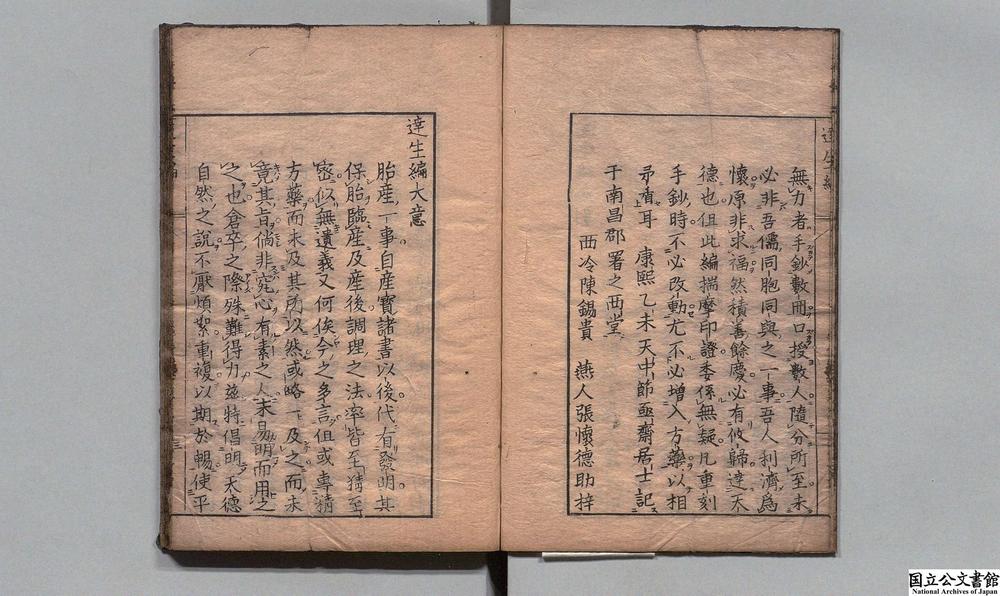 無力者手鈔數冊口授數人隨分所至未
必非吾儒同胞同與之一事吾人利濟為
懷原非求福然積善餘慶必有攸歸達大
德也但此編揣摩印證委係無疑凡重刻
手鈔時不必改動尤不必增入方藥以相
矛盾耳 康熙乙未天中節亟齋居士記
于南昌郡署之西堂
西冷陳錫貴 燕人張懷德助梓
達生編大意
胎產一事自產寶諸書以後代有發明其
保胎臨產及產後調理之法率皆至精至
密似無遺義又何俟今之多言但或專精
方藥而未及其所以然或略一及之而未
竟其旨倘非究心有素之人未易明而用之
之也倉卒之際殊難得力茲特倡明天德
自然之說不厭煩絮重複以期於暢使平
達生編
国立公文書館
National Archives of Japan